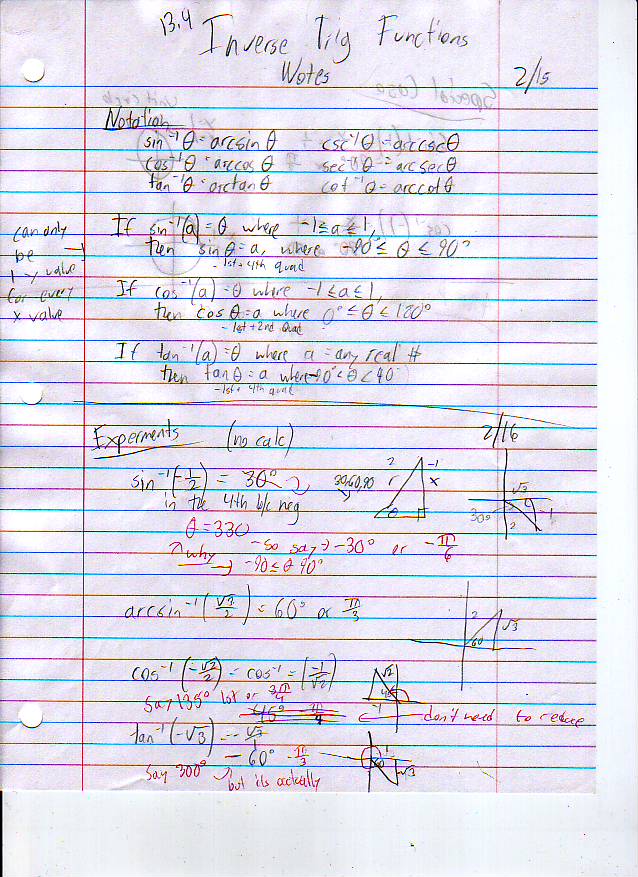 13.4
Inverse Trig Functions
Notes
2/15
Notation
sin⁻¹θ = arcsin θ csc⁻¹θ = arccscθ
cos⁻¹θ = arccos θ sec⁻¹θ = arcsecθ
tan⁻¹θ = arctan θ cot⁻¹θ = arccotθ
can only
be
1 y value
for every
x value
If sin⁻¹(a) = θ where -1≤a≤1,
then sin θ = a, where -90°≤ θ ≤ 90°
- 1st + 4th quad
If cos⁻¹(a) = θ where -1≤a≤1,
then cos θ = a where 0°≤θ≤180°
- 1st + 2nd quad
If tan⁻¹(a) = θ where a = any real #
then tan θ = a where -90°<θ<90°
- 1st + 4th quad
Experments (no calc) 2/16
sin⁻¹(-1/2) = 30° 30,60,90
2 -1 x θ
√3 30° -1 2
in the 4th b/c neg
θ = 330
why - so say → -30° or -π/6
→ -90≤θ 90°
arcsin⁻¹(√3/2) = 60° or π/3
2 √3 60
cos⁻¹(-√2/2) = cos⁻¹ = (-1/√2)
√2 -1
Say 135° or 3π/4
don't need to reduce
tan⁻¹(-√3) = -√3/1
-60° -π/3
1 60 -√3
Say 300° but its actually